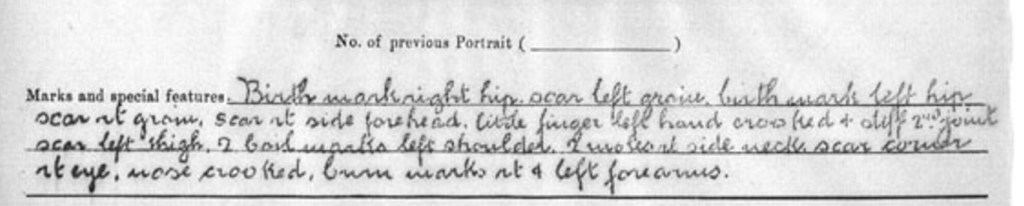 No. of previous Portrait ( ____________ )
Marks and special features. Birth mark right hip, scar left groin, birth mark left hip,
scar rt groin, scar rt side forehead, little finger left hand crooked & stiff 2nd joint
scar left thigh, 2 boil marks left shoulder, 2 moles rt side neck, scar corner
rt eye, nose crooked, burn marks rt & left forearms.